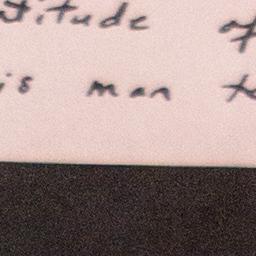 titude of
is man to